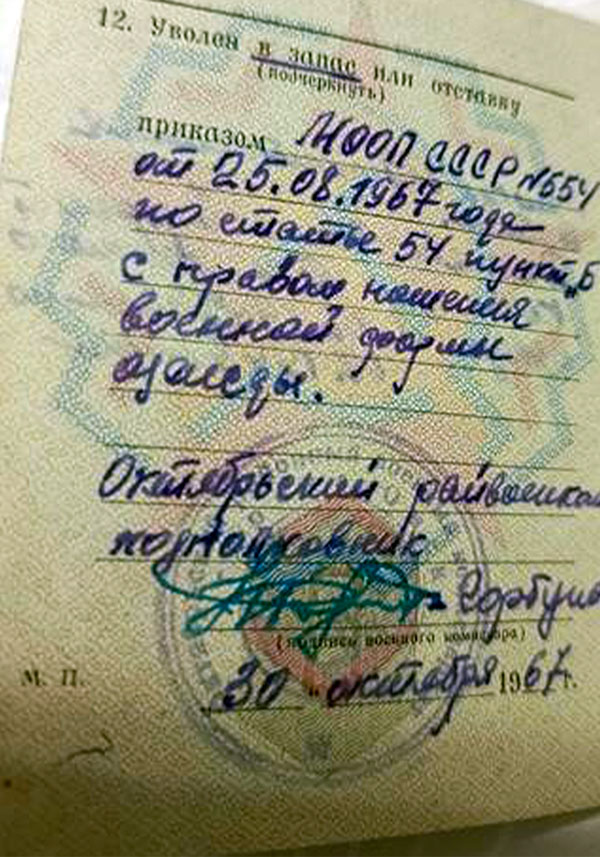 12. Уволен в запас или отставку
(подчеркнуть)
приказом МООП СССР №554
от 25.08.1967 года
по статье 54 пункт „Б
с правом ношения
военной формы
одежды.
Октябрьский райвоенком
подполковник
(подпись военного комиссара)
М. П.
30 " октября 1967 г.